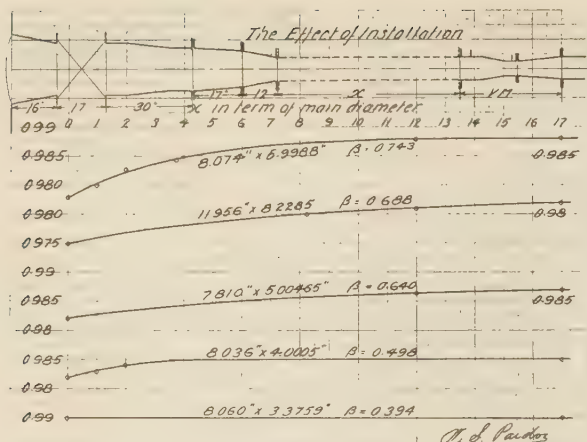 The Effect of Installation
16" 17 30" 17" 12 x V M
x in term of main diameter.
0.99 0 1 2 3 4 5 6 7 8 9 10 11 12 13 14 15 16 17
0.985 8.074" x 5.9988" β = 0.743 0.985
0.980
0.980 11.956" x 8.2285 β = 0.688 0.98
0.975
0.99
0.985 7.810" x 5.00465" β = 0.640 0.985
0.98
0.985 8.036" x 4.0005" β = 0.498
0.98
0.99 8.060" x 3.3759" β = 0.394
W. S. Pardoe